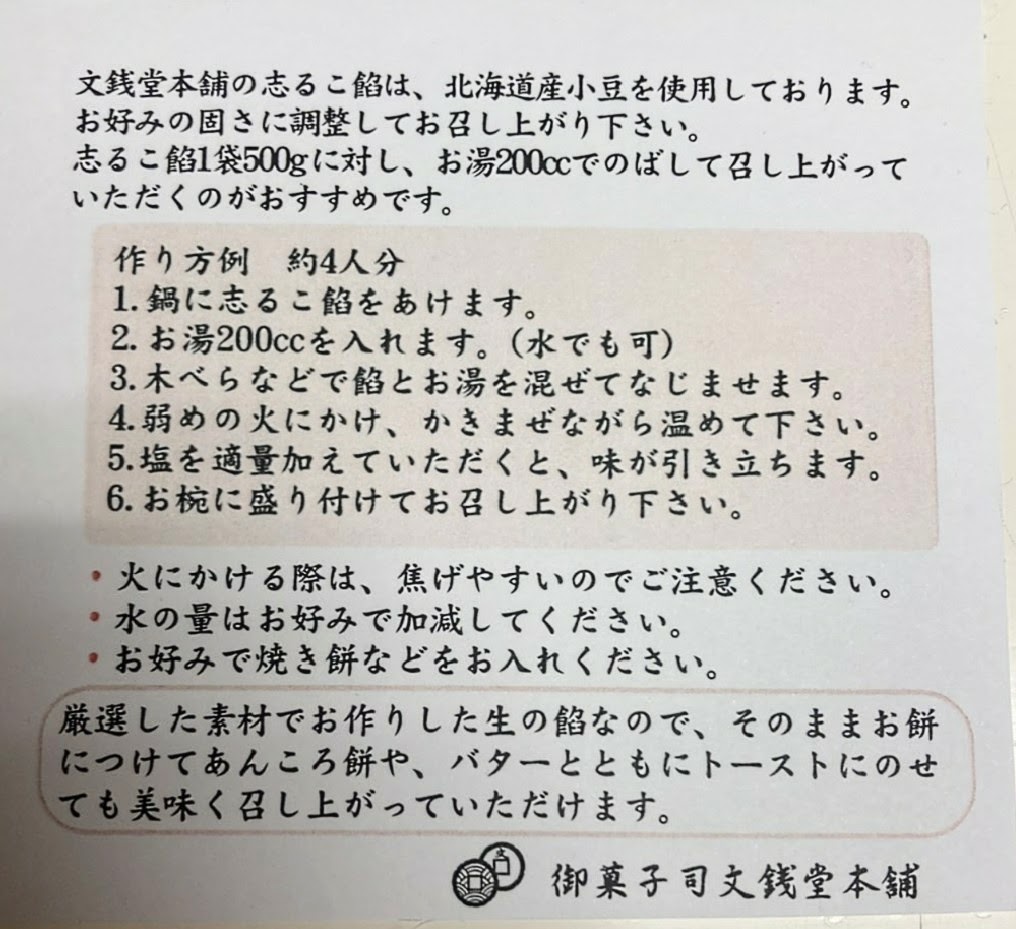 文銭堂本舗の志るこ餡は、北海道産小豆を使用しております。
お好みの固さに調整してお召し上がり下さい。
志るこ餡1袋500gに対し、お湯200ccでのばして召し上がって
いただくのがおすすめです。
作り方例　約4人分
1.鍋に志るこ餡をあけます。
2.お湯200ccを入れます。(水でも可)
3.木べらなどで餡とお湯を混ぜてなじませます。
4.弱めの火にかけ、かきまぜながら温めて下さい。
5.塩を適量加えていただくと、味が引き立ちます。
6.お椀に盛り付けてお召し上がり下さい。
・火にかける際は、焦げやすいのでご注意ください。
・水の量はお好みで加減してください。
・お好みで焼き餅などをお入れください。
厳選した素材でお作りした生の餡なので、そのままお餅
につけてあんころ餅や、バターとともにトーストにのせ
ても美味く召し上がっていただけます。
文
御菓子司文銭堂本舗